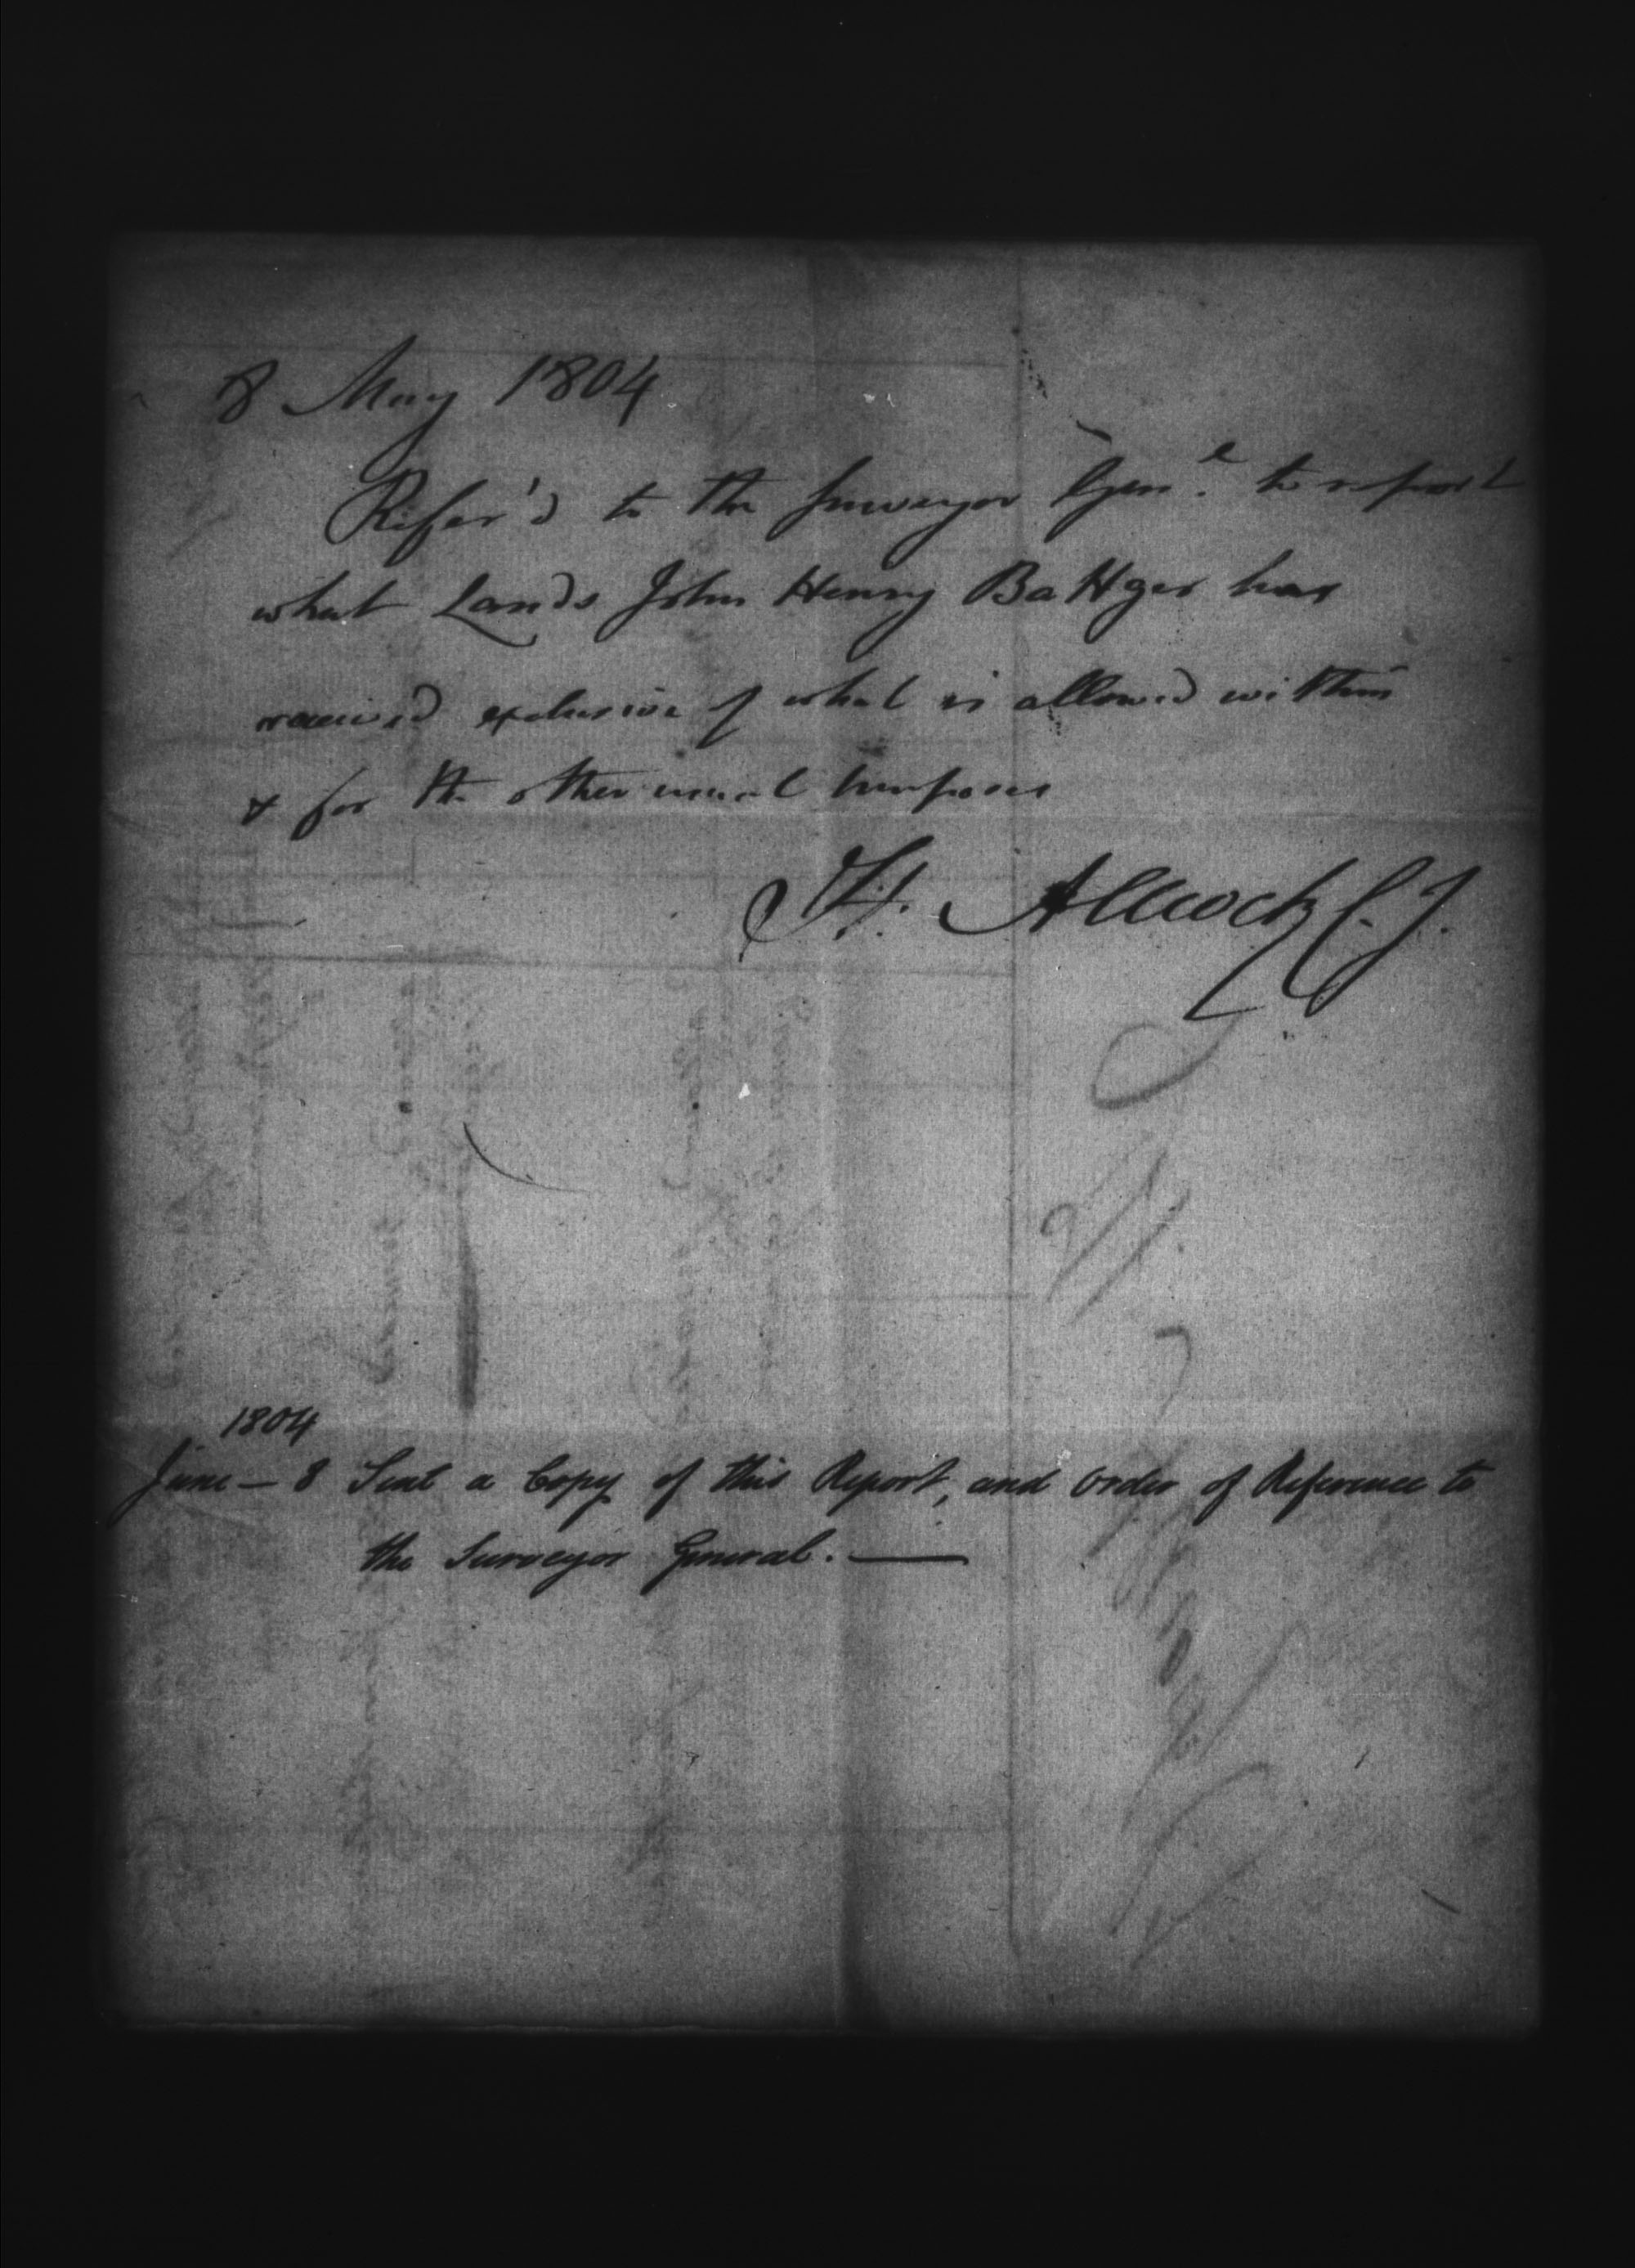 8 May 1804
Refer'd to the Surveyor Gen.l to report
what Lands John Henry Battger has
received exclusive of what is allowed within
& for the other usual purposes
H. Allcock C.J.
1804
June — 8 Sent a Copy of this Report, and Order of Reference to
the Surveyor General. —